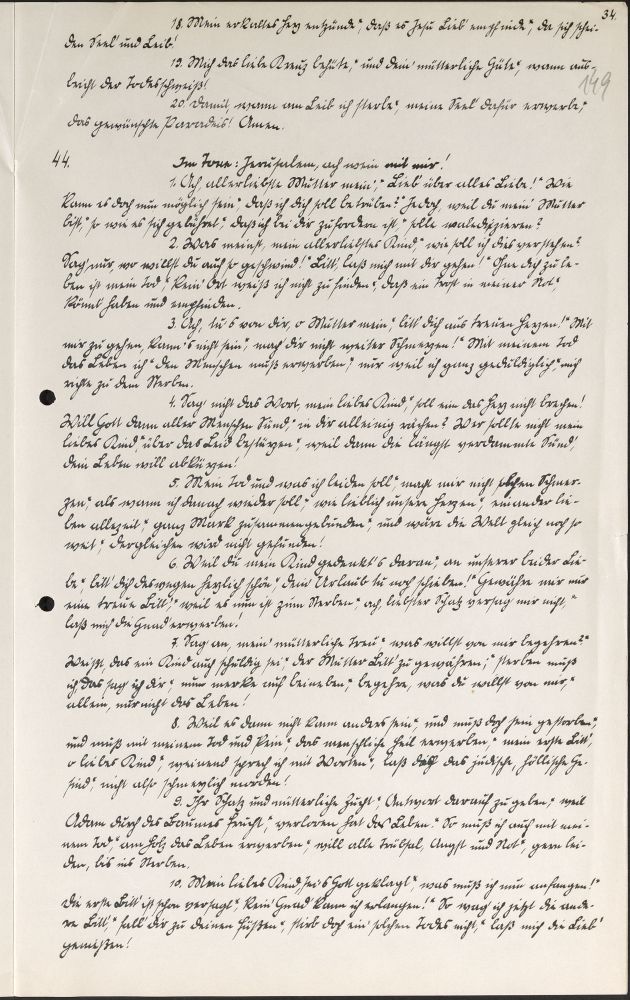 34.
18. Mein erkaltes Herz entzünde", daß es Jesu Lieb' empfinde", da sich schei-
den Seel' und Leib!
19. Mich das liebe Kreuz behüte", und dein' mütterliche Güte", wann aus-
bricht der Todesschweiß!
149
20. Damit, wann am Leib ich sterbe", meine Seel' dafür erwerbe",
das gewünschte Paradeis! Amen.
44. Im Tone: Jerusalem, ach wein mit mir!
1. Ach, allerliebste Mutter mein", Lieb über alles Liebe!" Wie
kann es doch nun möglich sein", daß ich dich soll betrüben?" Jedoch, weil du mein' Mutter
bist", so wie es sich gebühret", daß ich bei dir zufordern ist", solle valedizieren?
2. Was meinst, mein allerliebstes Kind", wie soll ich dies verstehen?
Sag' nur, wo willst du auch so geschwind! Bitt', laß mich mit dir gehen!" Ohne dich zu le-
ben ist mein Tod", kein' Ort weiß ich nicht zu finden", daß ein' Trost in meiner Not",
könnt' haben und empfinden.
3. Ach, tu's von dir, o Mutter mein", bitt' dich aus treuen Herzen!" Mit
mir zu gehen, kann's nicht sein", mach' dir nicht weiter Schmerzen!" Mit meinem Tod
das Leben ich" den Menschen muß erwerben", nur weil ich ganz geduldiglich" mich
richte zu dem Sterben.
4. Sag' nicht das Wort, mein liebes Kind", soll ein' das Herz nicht brechen!
Will Gott dann aller Menschen Sünd", in dir alleinig rächen? Wer sollte nicht mein
liebes Kind", über das Leid bestürzen", weil dann die längst verdammte Sünd'
dein Leben will abkürzen!
5. Mein Tod und was ich leiden soll", macht mir nicht solchen Schmer-
zen", als wann ich danach wieder soll", wie lieblich unsere Herzen", einander lie-
ben allezeit", ganz stark zusammengebunden", und wäre die Welt gleich noch so
weit", dergleichen wird nicht gefunden!
6. Weil du mein Kind gedenkst's daran", an unserer beider Lie-
be", bitt' dich deswegen herzlich schön", dein' Urlaub tu noch schieben!" Gewähre mir nur
eine treue Bitt'", weil es nun ist zum Sterben", ach, liebster Schatz versag' mir nicht,"
laß mich die Gnad' erwerben!
7. Sag' an, mein' mütterliche Treu'" was willst von mir begehren?"
Weißt, das ein Kind auch schuldig sei", der Mutter Bitt' zu gewähren;" sterben muß
ich das sag' ich dir", nun merke auf beineben", begehre, was du willst von mir",
allein, nur nicht das Leben!
8. Weil es dann nicht kann anders sein", und muß doch sein gestorben",
und muß mit meinem Tod und Pein", das menschliche Heil erwerben", mein erste Bitt',
o liebes Kind", weinend sprech' ich mit Worten", laß doch das jüdische, höllische Ge-
sind", nicht also schmerzlich morden!
9. Ihr Schatz und mütterliche Zucht", Antwort darauf zu geben", weil
Adam durch des Baumes Frucht", verloren hat das Leben." So muß ich auch mit mei-
nem Tod", am Holz das Leben erwerben", will alle Trübsal, Angst und Not", gern lei-
den, bis ins Sterben.
10. Mein liebes Kind, sei's Gott geklagt", was muß ich nun anfangen!"
Die erste Bitt' ist schon versagt", kein' Gnad' kann ich erlangen!" So wag' ich jetzt die ande-
re Bitt'", fall' dir zu deinen Füßen", stirb doch ein' solchen Todes nicht", laß mich die Lieb'
genießen!